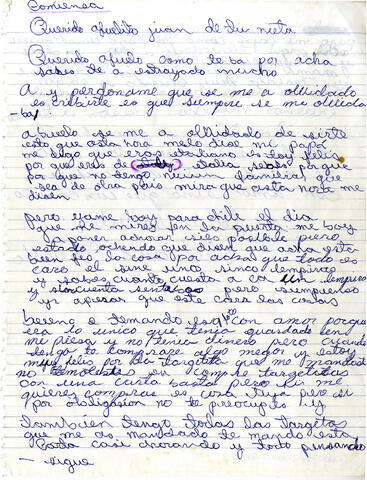 Comiensa
Querido abuelito juan de tu nieta
Querido abuelo como te ba por acha
sabes te a estrayado mucho
A y perdoname que se me a olbidado
escribirte es que siempre se mi olbida
-ba
abuelo se me a olbidado de sirte
esto que asta hora melo dise mi papá
me digo que eras etaliano estoy felis
por que eres de italia sabes porque
por que no tengo niun familiar que
sea de otra pais mira que asta norte me
disen
pero yame boy para chile el dia
que me mires en la puerta me boy
a poner adorar si es posible pero
estado ochendo que disen que acha esta
bien feo la cosa por achas que todo es
caro el sine uno sinco lempiras
y sabes cuanto cuesta aca un lempira
y sincuenta sentabos pero sumpuesto
y apesar que este chas las cosas
bereno e temando esto con amor porque
eso lo unico que tenia guardado en
mi piesa y no tenia dinero pero cuando
tengo te comprare algo mejor y estoy
muy felis por la targetita que me mandaste
no temolestes en compra targetitas
con una carta basta pero si me
quieres comprar es cosa tuya pero si
por obligasion no te preocupes y
tambien tengo todas las targetas
que me as mandado te mando esta
carta casi chorando y todo pensando
-sigue